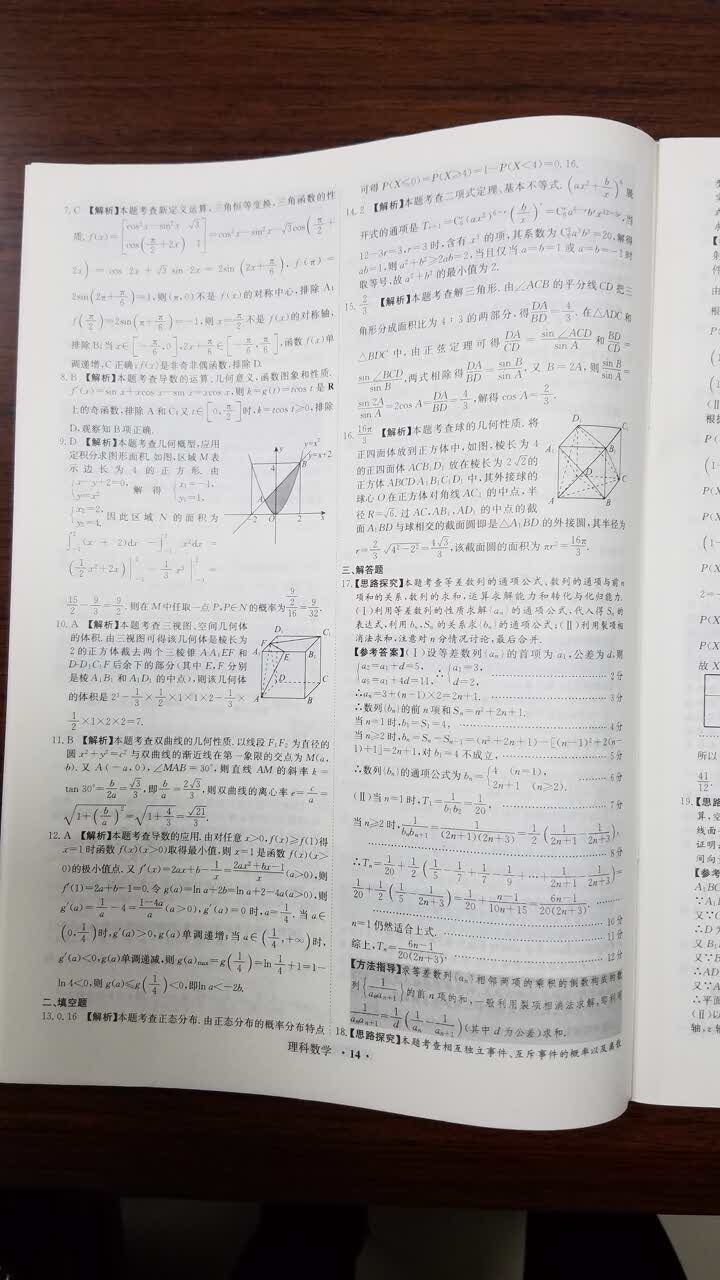 7. C 【解析】本题考查新定义运算,三角恒等变换,三角函数的性
质. f(x)=|cos²x−sin²x √3; cos(π/2+2x) 1|=cos²x−sin²x−√3cos(π/2+
2x)=cos 2x+√3 sin 2x=2sin(2x+π/6), f(π)=
2sin(2π+π/6)=1,则(π,0)不是 f(x)的对称中心,排除 A;
f(π/2)=2sin(π+π/6)=−1,则 x=π/2不是 f(x)的对称轴,
排除 B;当 x∈[−π/6,0],2x+π/6∈[−π/6,π/6],函数 f(x)单
调递增,C 正确;f(x)是非奇非偶函数,排除 D.
8. B 【解析】本题考查导数的运算、几何意义,函数图象和性质.
f′(x)=sin x+xcos x−sin x=xcos x,则 k=g(t)=tcos t 是 R
上的奇函数,排除 A 和 C;又 t∈[0,π/2]时,k=tcos t≥0,排除
D,观察知 B 项正确.
9. D 【解析】本题考查几何概型,应用
定积分求图形面积.如图,区域 M 表
示边长为 4 的正方形.由
{x−y+2=0, y=x² 解得 {x₁=−1, y₁=1,
{x₂=2, y₂=4, 因此区域 N 的面积为
∫₋₁²(x+2)dx−∫₋₁²x²dx=
(1/2x²+2x)|₋₁²−1/3x³|₋₁²=
15/2−9/3=9/2.则在 M 中任取一点 P,P∈N 的概率为(9/2)/16=9/32.
y
y=x²
y=x+2
4
B
A
−2
O
2
x
10. A 【解析】本题考查三视图、空间几何体
的体积.由三视图可得该几何体是棱长为
2 的正方体截去两个三棱锥 A-A₁EF 和
D-D₁C₁F 后余下的部分(其中 E,F 分别
是棱 A₁B₁ 和 A₁D₁ 的中点),则该几何体
的体积是 2³−1/3×1/2×1×1×2−1/3×
1/2×1×2×2=7.
D₁
C₁
F
A₁
E
B₁
D
C
A
B
11. B 【解析】本题考查双曲线的几何性质.以线段 F₁F₂ 为直径的
圆 x²+y²=c² 与双曲线的渐近线在第一象限的交点为 M(a,
b).又 A(−a,0),∠MAB=30°,则直线 AM 的斜率 k=
tan 30°=b/2a=√3/3,即b/a=2√3/3,则双曲线的离心率 e=c/a=
√(1+(b/a)²)=√(1+4/3)=√21/3.
12. A 【解析】本题考查导数的应用.由对任意 x>0,f(x)≥f(1)得
x=1 时函数 f(x)(x>0)取得最小值,则 x=1 是函数 f(x)(x>
0)的极小值点.又 f′(x)=2ax+b−1/x=(2ax²+bx−1)/x(a>0),则
f′(1)=2a+b−1=0.令 g(a)=ln a+2b=ln a+2−4a(a>0),则
g′(a)=1/a−4=(1−4a)/a(a>0),g′(a)=0 时,a=1/4.当 a∈
(0,1/4)时,g′(a)>0,g(a)单调递增;当 a∈(1/4,+∞)时,
g′(a)<0,g(a)单调递减,则 g(a)max=g(1/4)=ln1/4+1=1−
ln 4<0,则 g(a)≤g(1/4)<0,即 ln a<−2b.
二、填空题
13. 0.16 【解析】本题考查正态分布.由正态分布的概率分布特点
可得 P(X≤0)=P(X≥4)=1−P(X<4)=0.16.
14. 2 【解析】本题考查二项式定理、基本不等式.(ax²+b/x)⁶展
开式的通项是 Tᵣ₊₁=C₆ʳ(ax²)⁶⁻ʳ(b/x)ʳ=C₆ʳa⁶⁻ʳbʳx¹²⁻³ʳ,当
12−3r=3,r=3 时,含有 x³ 的项,其系数为 C₆³a³b³=20,解得
ab=1,则 a²+b²≥2ab=2,当且仅当 a=b=1 或 a=b=−1 时
取等号,故 a²+b² 的最小值为 2.
15. 2/3 【解析】本题考查解三角形.由∠ACB 的平分线 CD 把三
角形分成面积比为 4∶3 的两部分,得DA/BD=4/3.在△ADC 和
△BDC 中,由正弦定理可得DA/CD=sin∠ACD/sin A和BD/CD=
sin∠BCD/sin B,两式相除得DA/BD=sin B/sin A,又 B=2A,则sin B/sin A=
sin 2A/sin A=2cos A=DA/BD=4/3,解得 cos A=2/3.
16. 16π/3 【解析】本题考查球的几何性质.将
正四面体放到正方体中,如图,棱长为 4
的正四面体 ACB₁D₁ 放在棱长为 2√2的
正方体 ABCDA₁B₁C₁D₁ 中,其外接球的
球心 O 在正方体对角线 AC₁ 的中点,半
径 R=√6.过 AC,AB₁,AD₁ 的中点的截
面 A₁BD 与球相交的截面圆即是△A₁BD 的外接圆,其半径为
r=2/3√(4²−2²)=4√3/3,该截面圆的面积为 πr²=16π/3.
D₁
C₁
A₁
B₁
D
C
A
B
三、解答题
17.【思路探究】本题考查等差数列的通项公式、数列的通项与前 n
项和的关系、数列的求和,运算求解能力和转化与化归能力.
(Ⅰ)利用等差数列的性质求解{aₙ}的通项公式,代入得 Sₙ 的
表达式,利用 bₙ,Sₙ 的关系求{bₙ}的通项公式;(Ⅱ)利用裂项相
消法求和,注意对 n 分情况讨论,最后合并.
【参考答案】(Ⅰ)设等差数列{aₙ}的首项为 a₁,公差为 d,则
{a₂=a₁+d=5, a₅=a₁+4d=11, ∴{a₁=3, d=2, …… 2分
∴aₙ=3+(n−1)×2=2n+1. …… 3分
∴数列{bₙ}的前 n 项和 Sₙ=n²+2n+1.
当 n=1 时,b₁=S₁=4, …… 4分
当 n≥2 时,bₙ=Sₙ−Sₙ₋₁=(n²+2n+1)−[(n−1)²+2(n−
1)+1]=2n+1,对 b₁=4 不成立, …… 5分
∴数列{bₙ}的通项公式为 bₙ={4 (n=1), 2n+1 (n≥2). …… 6分
(Ⅱ)当 n=1 时,T₁=1/b₁b₂=1/20, …… 7分
当 n≥2 时,1/bₙbₙ₊₁=1/(2n+1)(2n+3)=1/2(1/2n+1−1/2n+3),
…… 8分
∴Tₙ=1/20+1/2(1/5−1/7+1/7−1/9+…+1/2n+1−1/2n+3)=
1/20+1/2(1/5−1/2n+3)=1/20+n−1/10n+15=6n−1/20(2n+3).
…… 10分
n=1 仍然适合上式. …… 11分
综上,Tₙ=6n−1/20(2n+3). …… 12分
【方法指导】求等差数列{aₙ}相邻两项的乘积的倒数构成的数
列{1/aₙaₙ₊₁}的前 n 项的和,一般利用裂项相消法求解,即利用
1/aₙaₙ₊₁=1/d(1/aₙ−1/aₙ₊₁)(其中 d 为公差)求和.
18.【思路探究】本题考查相互独立事件、互斥事件的概率以及离散
理科数学 · 14 ·